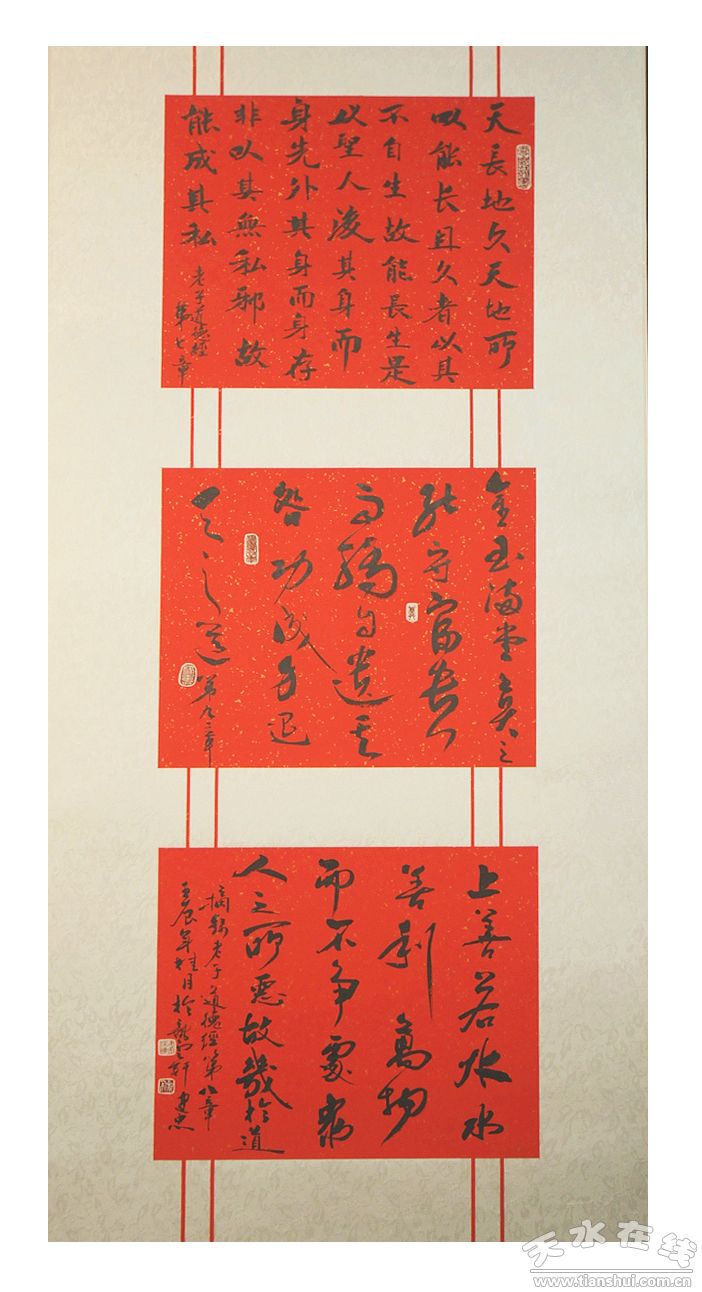 天長地久天地所
以能长且久者以其
不自生故能長生是
以聖人後其身而
身先外其身而身存
非以其無私邪故
能成其私
老子道德經
第七章
金玉满堂莫之
能守富贵
而骄自遗其
咎功成身退
天之道
第九章
上善若水水
善利萬物
而不争處衆
人之所惡故幾於道
摘錄老子道德經第八章
壬辰年桂月於龍軒建忠
天水在线
www.tianshui.com.cn